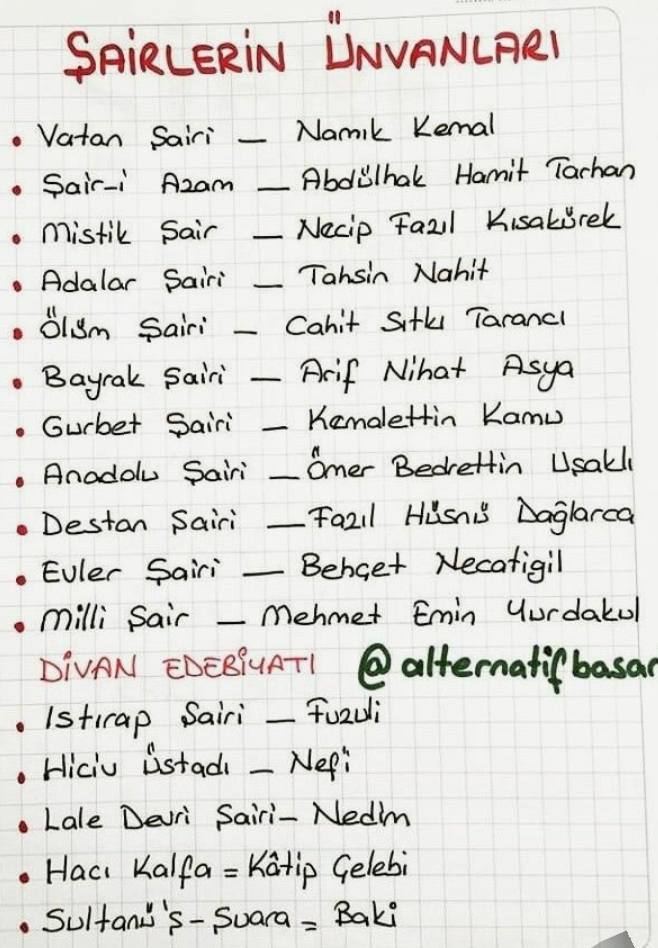 ŞAİRLERİN ÜNVANLARI
• Vatan Şairi — Namık Kemal
• Şair-i Azam — Abdülhak Hamit Tarhan
• Mistik Şair — Necip Fazıl Kısakürek
• Adalar Şairi — Tahsin Nahit
• Ölüm Şairi — Cahit Sıtkı Tarancı
• Bayrak Şairi — Arif Nihat Asya
• Gurbet Şairi — Kemalettin Kamu
• Anadolu Şairi — Ömer Bedrettin Uşaklı
• Destan Şairi — Fazıl Hüsnü Dağlarca
• Evler Şairi — Behçet Necatigil
• Milli Şair — Mehmet Emin Yurdakul
DİVAN EDEBİYATI @alternatifbasar
• Istırap Şairi — Fuzuli
• Hiciv Üstadı — Nefi
• Lale Devri Şairi — Nedim
• Hacı Kalfa = Kâtip Çelebi
• Sultanü'ş-Şuara = Baki